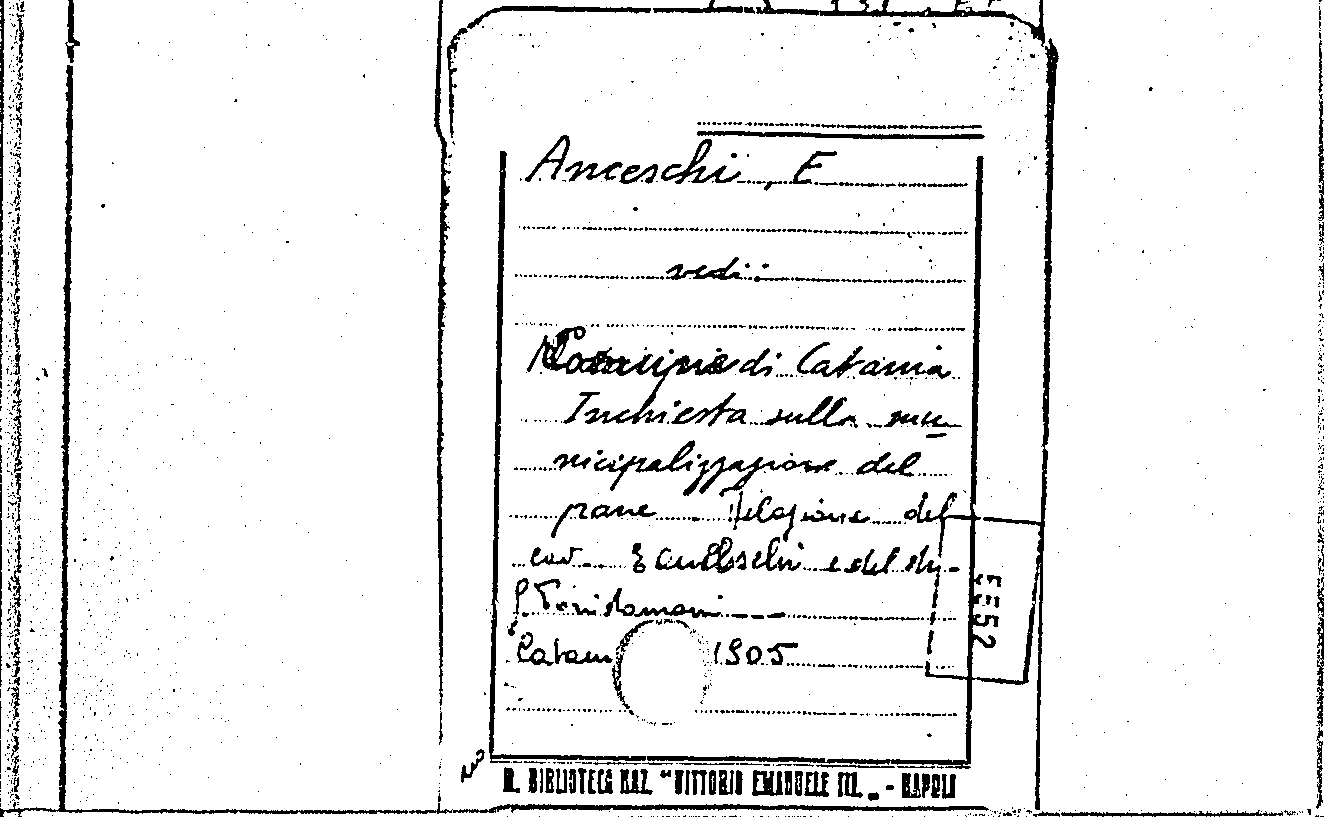 Anceschi, E
vedi:
Municipio di Catania
Inchiesta sulla mu
nicipalizzazione del
pane Relazione del
cav. E e del
Catan 1905
5552
R. BIBLIOTECA NAZ. "VITTORIO EMANUELE III. „ - NAPOLI